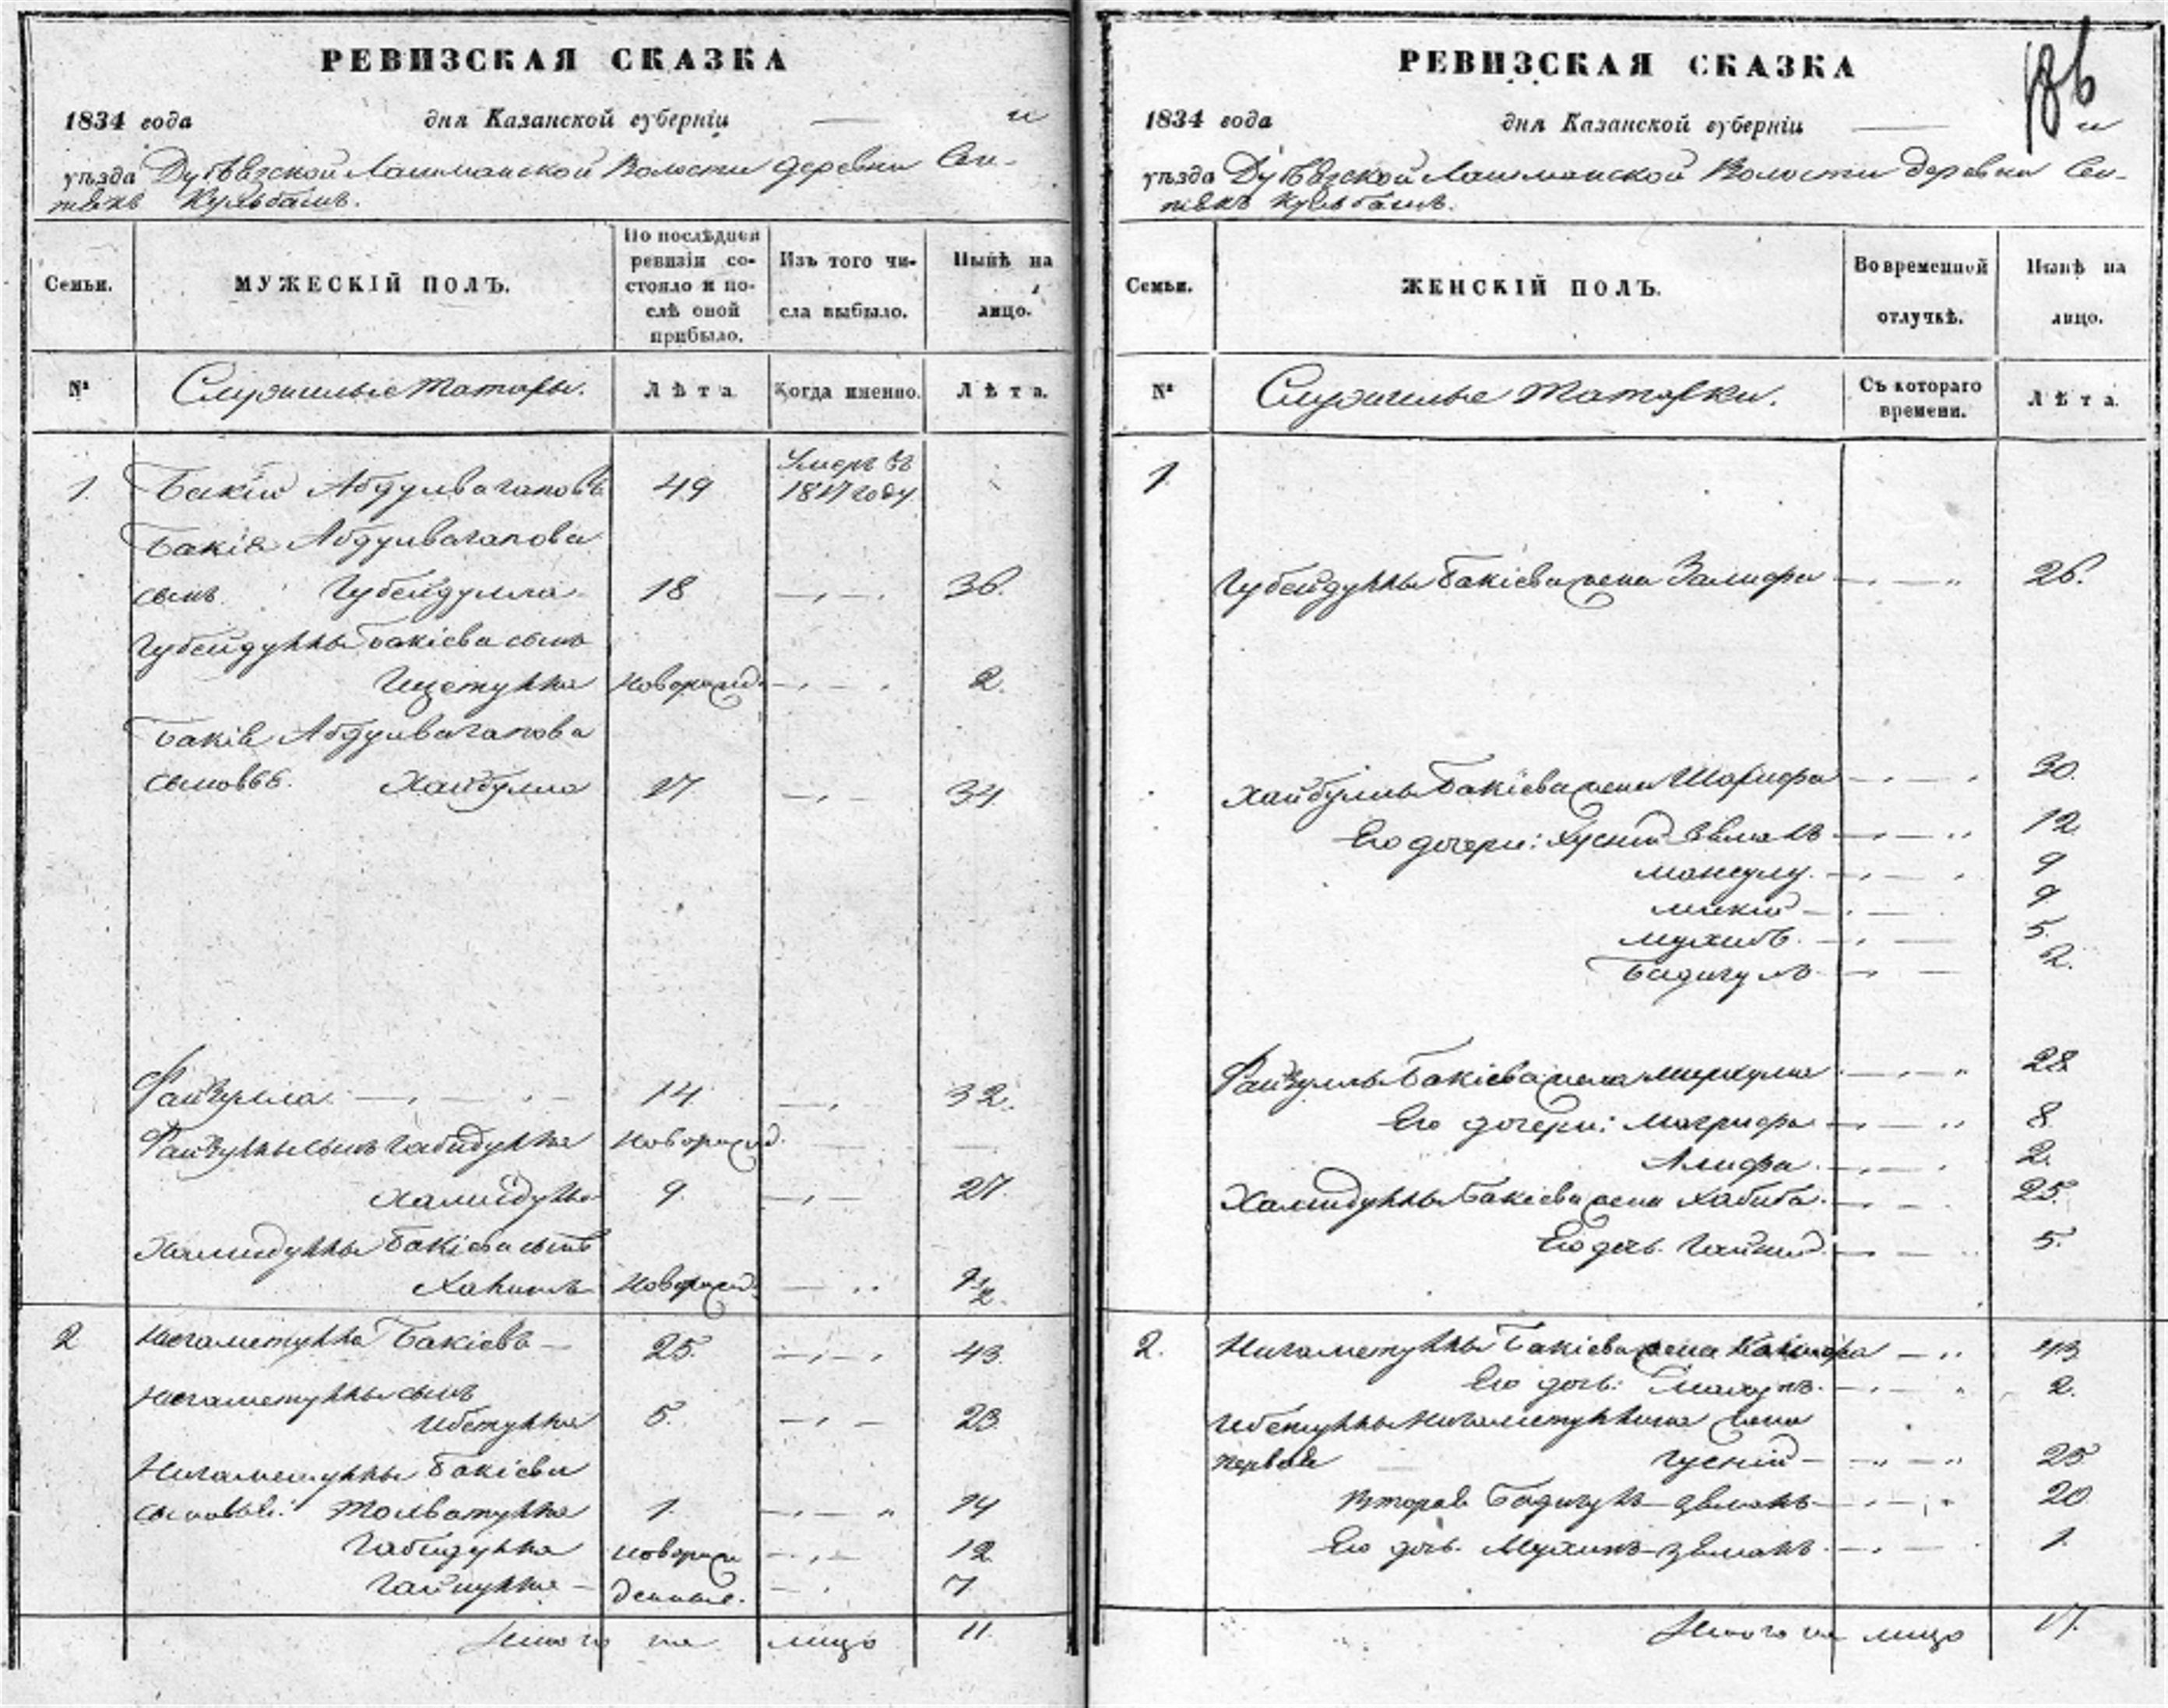 РЕВИЗСКАЯ СКАЗКА
1834 года дня Казанской губерніи — и
уѣзда Лашманской Волости деревни Сеи-
тякъ Кульбашъ.
Семьи.
МУЖЕСКІЙ ПОЛЪ.
По послѣдней
ревизіи со-
стояло и по-
слѣ оной
прибыло.
Изъ того чи-
сла выбыло.
Нынѣ на
лицо.
№
Служилые Татары.
Лѣта
Когда именно.
Лѣта.
Умеръ въ
1. Бакій Абдулвагаповъ 49 1817 году.
Бакія Абдулвагапова
сынъ Губейдулла 18 36.
Губейдуллы Бакіева сынъ
новорожд. 2.
Бакія Абдулвагапова
сыновья. Хайбулла 17 34
Файзулла 14 32.
Файзуллы сынъ Габидулла новорожд.
Халидулла 9. 27.
Халидуллы Бакіева сынъ
новорожд. 1/2
2 Нигаметулла Бакіевъ 25. 43.
Нигаметуллы сынъ
Ибетулла 5. 23
Нигаметуллы Бакіева
сыновья: 1. 14
Габидулла новорож 12
Гайнулла денные. 7.
Итого на лицо 11.
РЕВИЗСКАЯ СКАЗКА
186
1834 года дня Казанской губерніи — и
уѣзда Лашманской Волости деревни Сеи-
тякъ Кульбашъ.
Семьи.
ЖЕНСКІЙ ПОЛЪ.
Во временной
отлучкѣ.
Нынѣ на
лицо.
№
Служилые Татарки.
Съ котораго
времени.
Лѣта.
1.
Губейдуллы Бакіева жена Залифа 26.
Хайбуллы Бакіева жена Шарифа 30.
Его дочери: Хусни 12
9
9
5.
Бадигулъ 2.
Файзуллы Бакіева жена 28
Его дочери: Магрифа 8
Алифа 2.
Халидуллы Бакіева жена Хабиба 25.
Его дочь. 5.
2. Нигаметуллы Бакіева жена 43
Его дочь: 2.
Ибетуллы Нигаметуллина жена
первая Гусній 25
Вторая Бадигулъ 20
Его дочь. 1.
Итого на лицо 17.